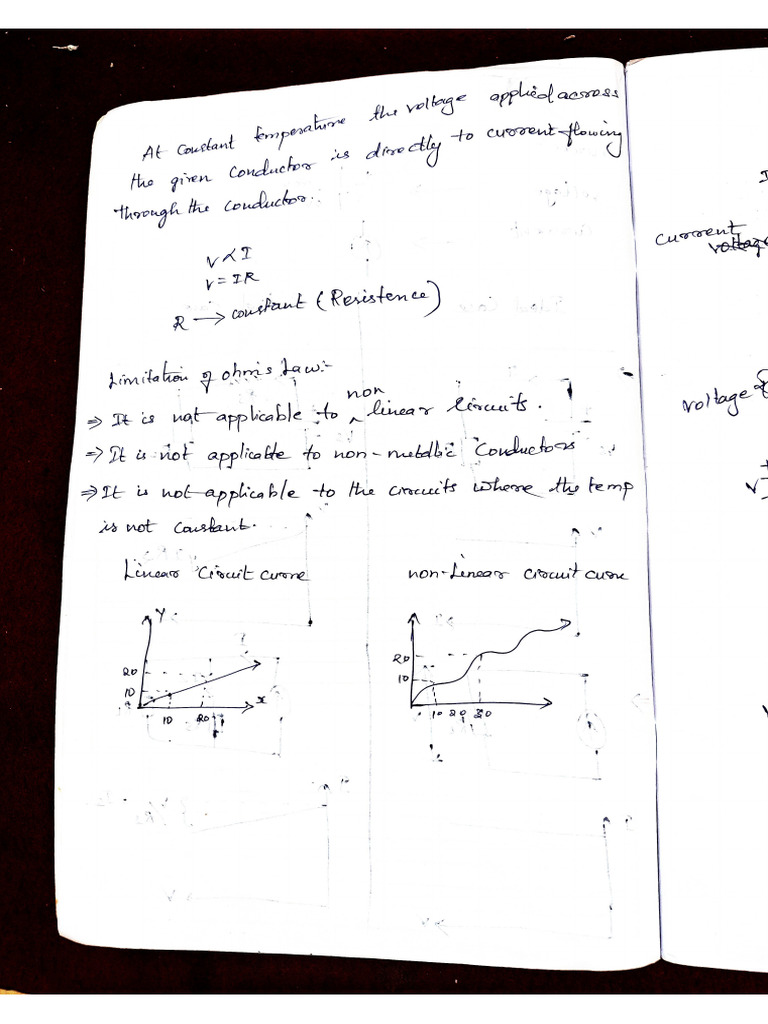 At constant temperature the voltage applied across
the given conductor is directly to current flowing
through the conductor.
V ∝ I
V = IR
R → constant (Resistence)
Limitation of ohm's Law:-
⇒ It is not applicable to non linear circuits.
⇒ It is not applicable to non-metallic conductors
⇒ It is not applicable to the circuits where the temp
is not constant.
Linear circuit curve
non-linear circuit curve
Y
20
10
10 20
x
20
10
10 20 30
current
voltage
voltage